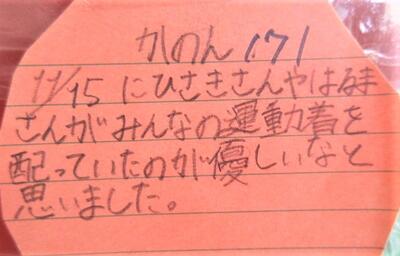 かのん 171
11/15 にひさきさんやはるま
さんがみんなの運動着を
配っていたのが優しいなと
思いました。